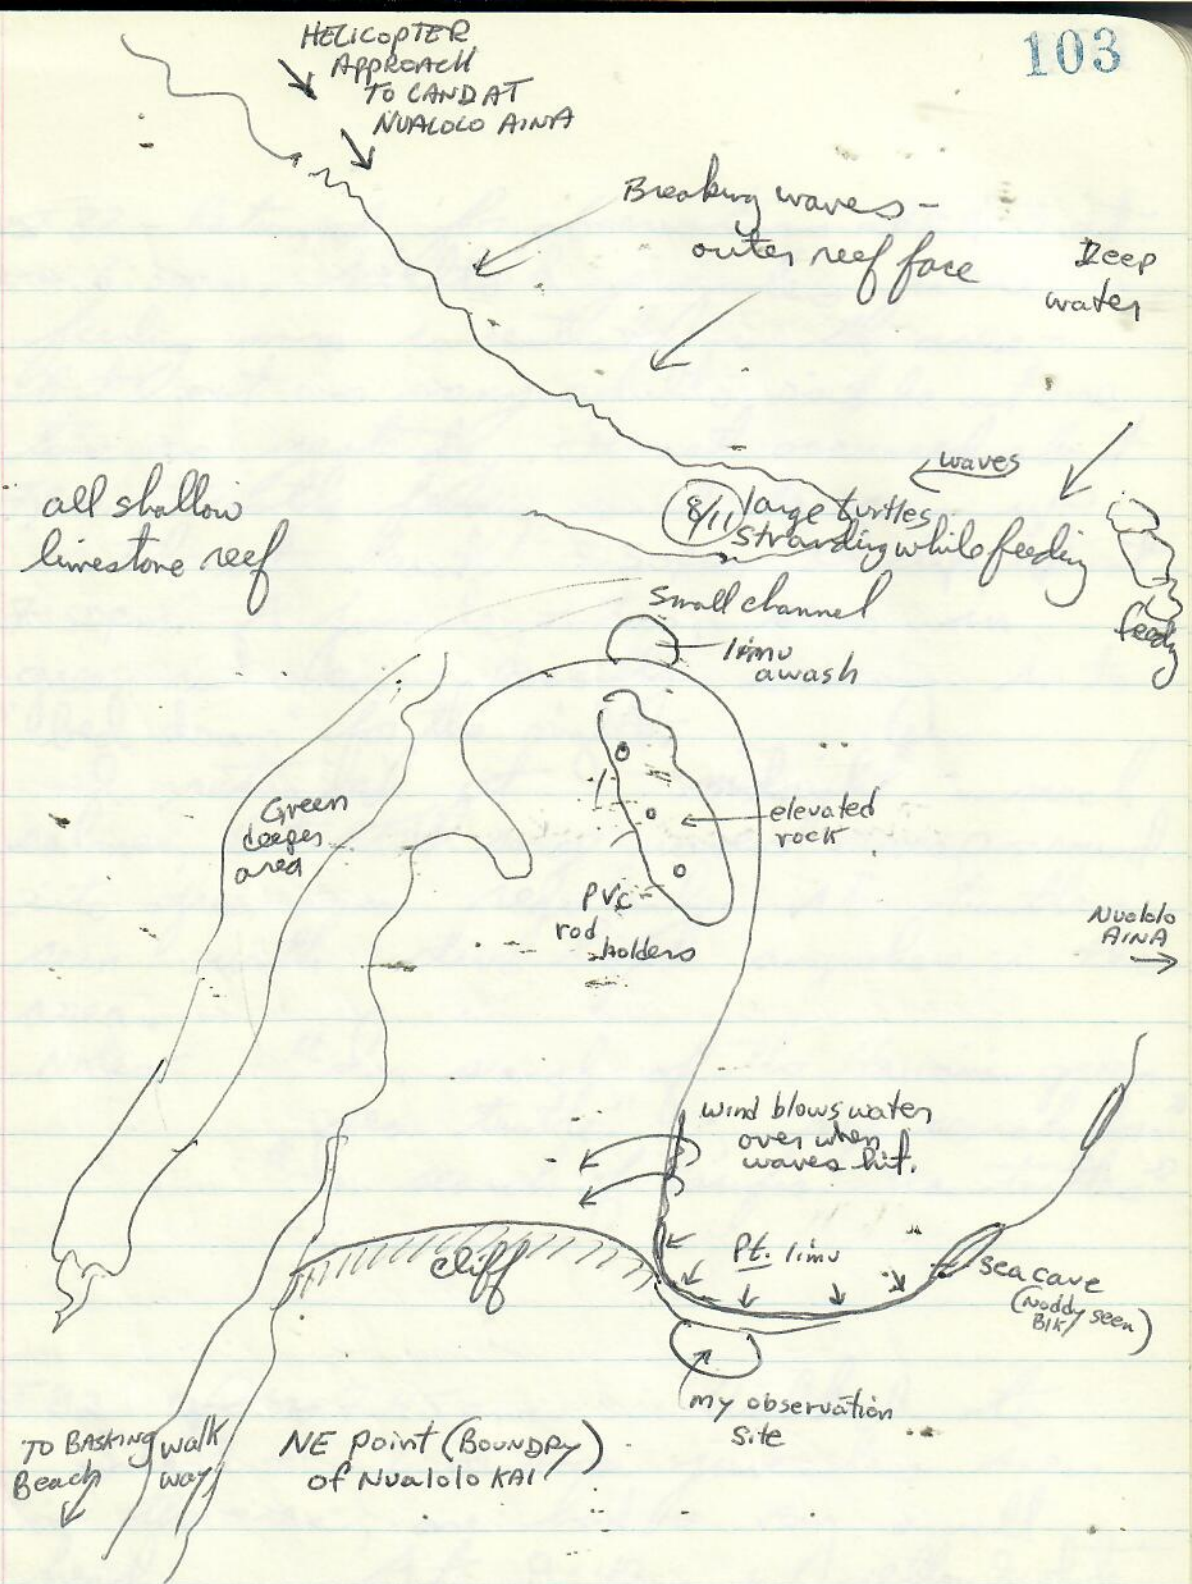 103
HELICOPTER
APPROACH
TO LAND AT
NUALOLO AINA
Breaking waves -
outer reef face
Deep
water
waves
all shallow
limestone reef
8/11 large turtles
stranding while feeding
feedg
small channel
limu
awash
Green
deeper
area
elevated
rock
PVC
rod
holders
Nualolo
AINA
wind blows water
over when
waves hit.
cliff
Pt. limu
sea cave
(Noddy seen
Blk)
my observation
site
TO BASKING
Beach
walk
way
NE point (BOUNDRY)
of Nualolo KAI